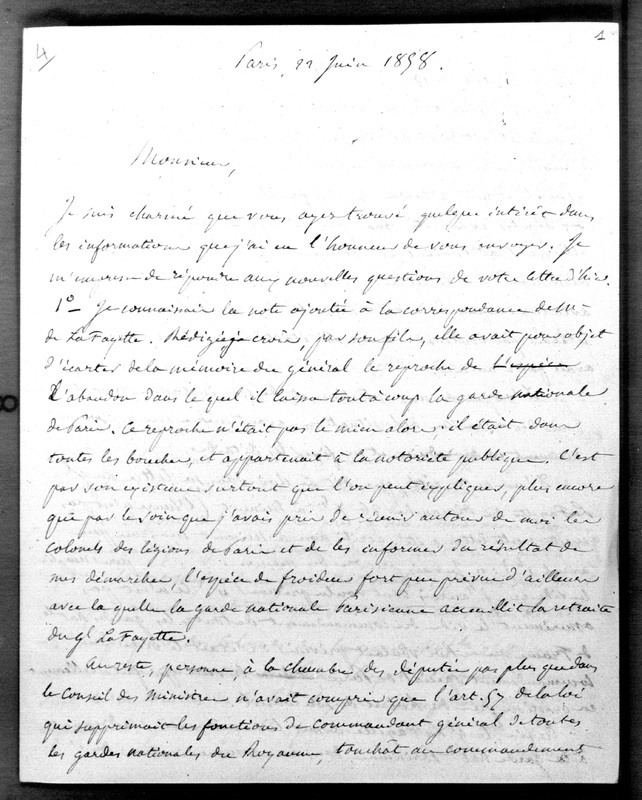 4
1
Paris, 22 Juin 1858.
Monsieur,
Je suis charmé que vous ayez trouvé quelque intérêt dans
les informations que j'ai eu l'honneur de vous envoyer. Je
m'empresse de répondre aux nouvelles questions de votre lettre d'hier.
1° — Je connaissais la note ajoutée à la correspondance de Mr
de La Fayette. Rédigée je crois, par son fils, elle avait pour objet
d'écarter de la mémoire du général le reproche de l'espèce
d'abandon dans lequel il laissa tout à coup la garde nationale
de Paris. Ce reproche n'était pas le mien alors; il était dans
toutes les bouches, et appartenait à la notoriété publique. C'est
par son existence surtout que l'on peut expliquer, plus encore
que par le soin que j'avais pris de réunir autour de moi les
colonels des légions de Paris et de les informer du résultat de
mes démarches, l'espèce de froideur fort peu prévue d'ailleurs
avec laquelle la garde nationale Parisienne accueillit la retraite
du gl La Fayette.
Au reste, personne, à la chambre des députés pas plus que dans
le Conseil des Ministres n'avait compris que l'art. 57 de la loi
qui supprimait les fonctions de commandant général de toutes
les gardes nationales du Royaume, touchât au commandement